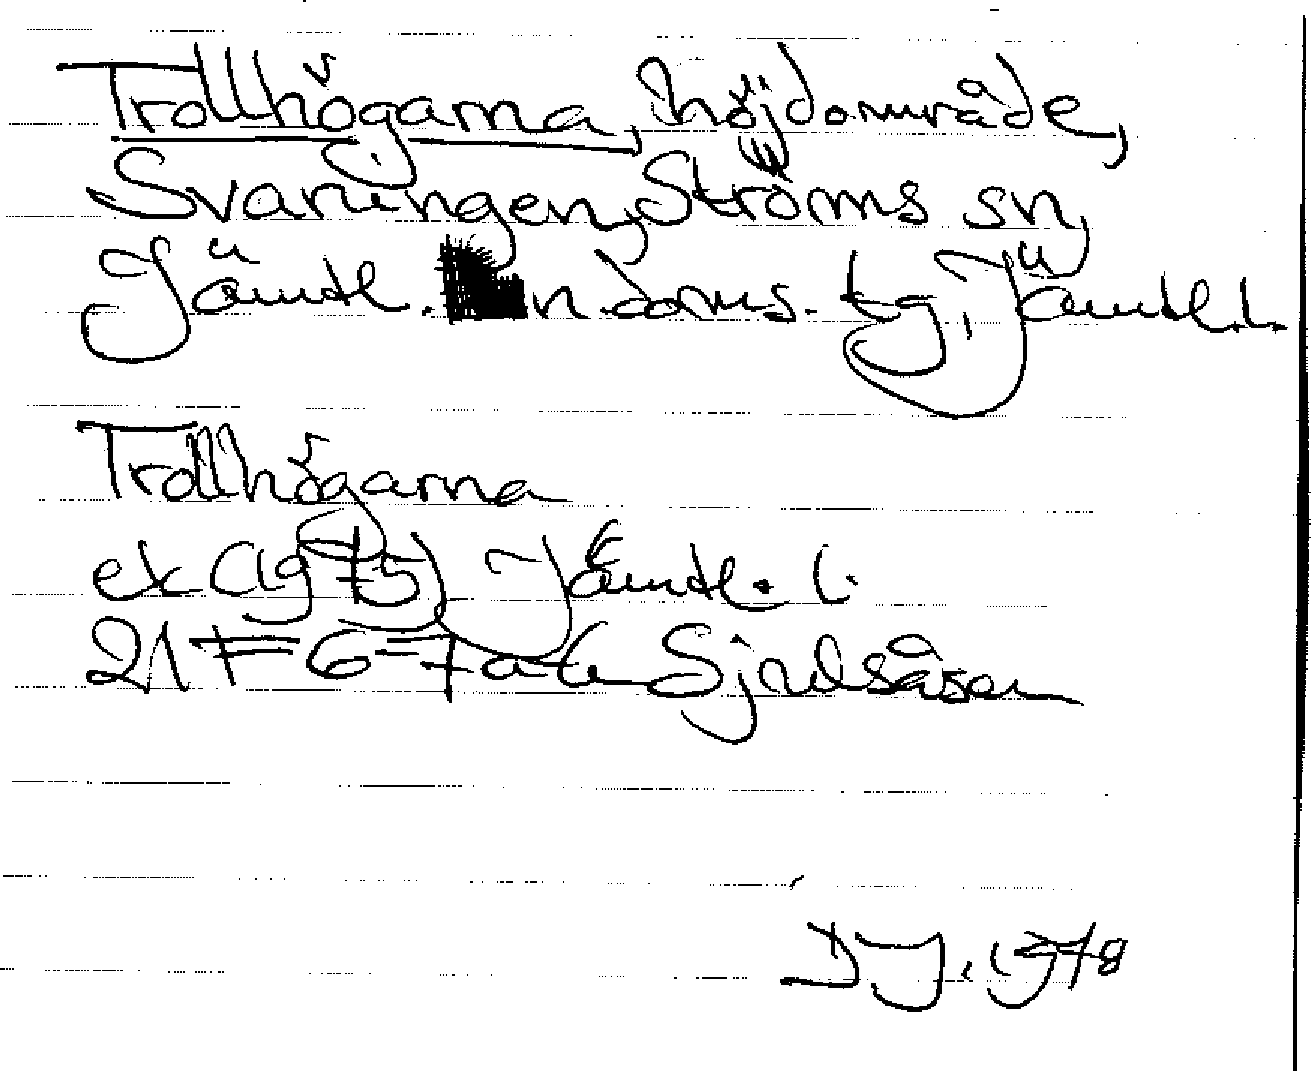 Trollhögarna, höjdområde,
Svaningen, Ströms sn,
Jämtl. n. doms. tg, Jämtl. l.
Trollhögarna
ek (1973) Jämtl. l.
21 F 6-7 a-b Sjoutsåsen
DJ, 1978